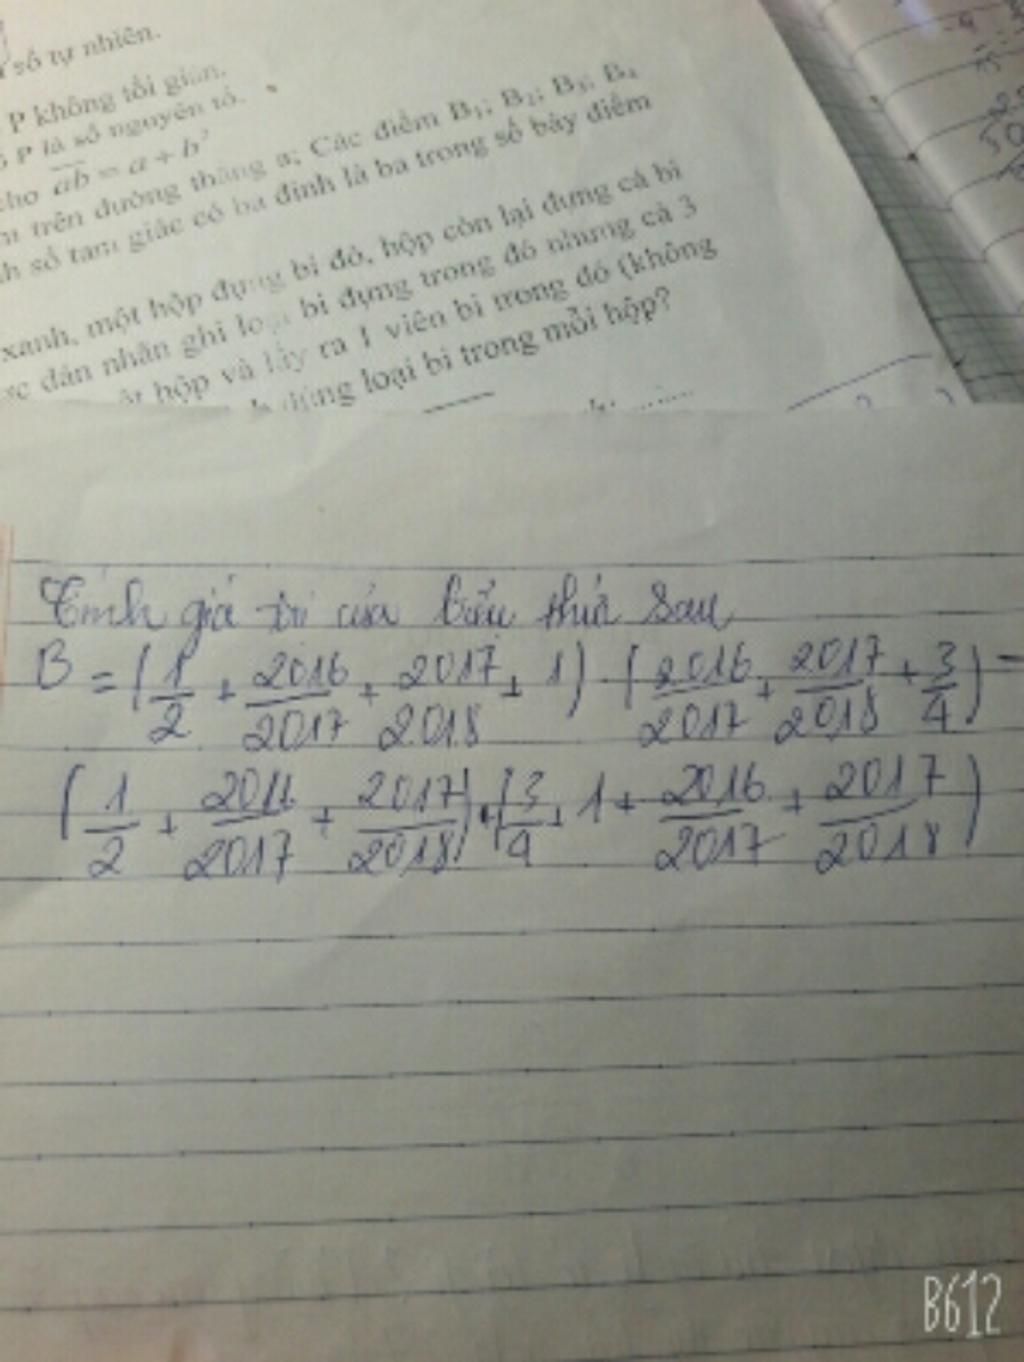 số tự nhiên.
P không tối giản.
P là số nguyên tố.
cho ab = a + b²
trên đường thẳng a; Các điểm B₁; B₂; B₃; B₄
số tam giác có ba đỉnh là ba trong số bảy điểm
xanh, một hộp đựng bi đỏ, hộp còn lại đựng cả bi
dán nhãn ghi loại bi đựng trong đó nhưng cả 3
hộp và lấy ra 1 viên bi trong đó (không
đúng loại bi trong mỗi hộp?
Tính giá trị của biểu thức sau
B = (1/2 + 2016/2017 + 2017/2018 + 1) · (2016/2017 + 2017/2018 + 3/4) -
(1/2 + 2016/2017 + 2017/2018) · (3/4 + 1 + 2016/2017 + 2017/2018)
B612